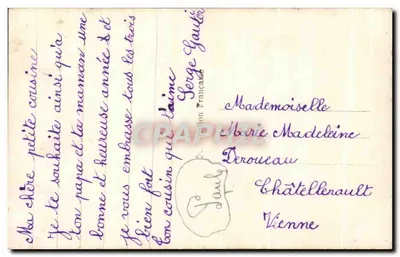 Ma chère petite cousine
Je te souhaite ainsi qu'a
ton papa et ta maman une
bonne et heureuse année & et
je vous embrasse tous les trois
bien fort
Ton cousin qui t'aime
Serge Gautier
tion Française
Mademoiselle
Marie Madeleine
Deroueau
Châtellerault
Vienne
Paul